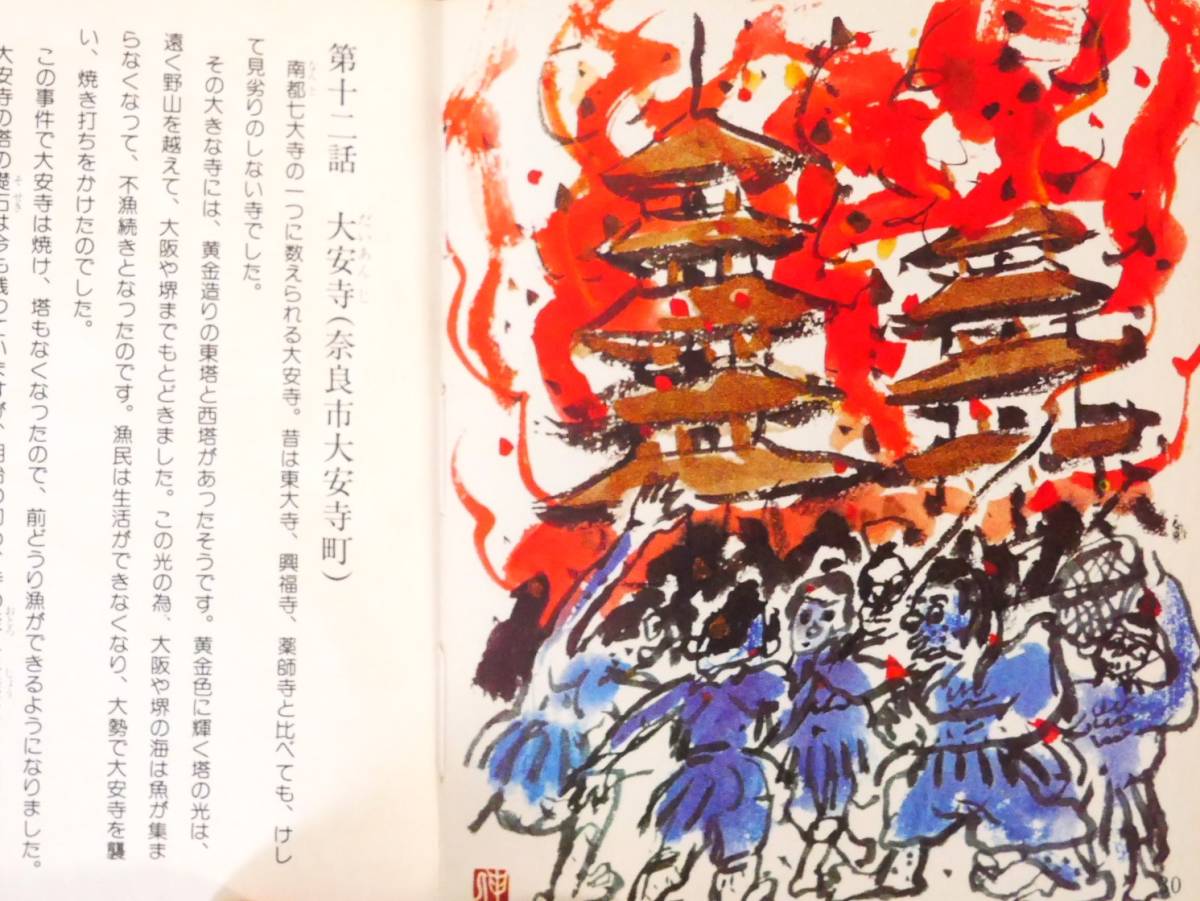 第十二話　大安寺（奈良市大安寺町）
だいあんじ
南都七大寺の一つに数えられる大安寺。昔は東大寺、興福寺、薬師寺と比べても、けし
なんと
て見劣りのしない寺でした。
その大きな寺には、黄金造りの東塔と西塔があつたそうです。黄金色に輝く塔の光は、
遠く野山を越えて、大阪や堺までもとどきました。この光の為、大阪や堺の海は魚が集ま
らなくなって、不漁続きとなつたのです。漁民は生活ができなくなり、大勢で大安寺を襲
い、焼き打ちをかけたのでした。
この事件で大安寺は焼け、塔もなくなつたので、前どうり漁ができるようになりました。
大安寺の塔の礎石は今も残つていますが、明治の初め、寺の
そせき
30